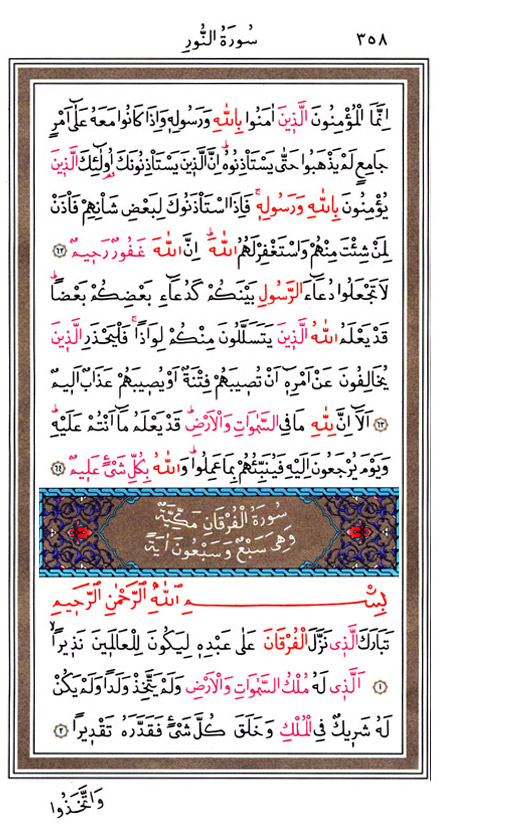 ٣٥٨ سُورَةُ النُّورِ
اِنَّمَا الْمُؤْمِنُونَ الَّذ۪ينَ اٰمَنُوا بِاللّٰهِ وَرَسُولِه۪ وَاِذَا كَانُوا مَعَهُ عَلٰٓى اَمْرٍ
جَامِعٍ لَمْ يَذْهَبُوا حَتّٰى يَسْتَأْذِنُوهُۜ اِنَّ الَّذ۪ينَ يَسْتَأْذِنُونَكَ اُو۬لٰٓئِكَ الَّذ۪ينَ
يُؤْمِنُونَ بِاللّٰهِ وَرَسُولِه۪ۚ فَاِذَا اسْتَأْذَنُوكَ لِبَعْضِ شَأْنِهِمْ فَأْذَنْ
لِمَنْ شِئْتَ مِنْهُمْ وَاسْتَغْفِرْ لَهُمُ اللّٰهَۜ اِنَّ اللّٰهَ غَفُورٌ رَح۪يمٌ ٦٢
لَا تَجْعَلُوا دُعَٓاءَ الرَّسُولِ بَيْنَكُمْ كَدُعَٓاءِ بَعْضِكُمْ بَعْضًاۜ
قَدْ يَعْلَمُ اللّٰهُ الَّذ۪ينَ يَتَسَلَّلُونَ مِنْكُمْ لِوَاذًاۚ فَلْيَحْذَرِ الَّذ۪ينَ
يُخَالِفُونَ عَنْ اَمْرِه۪ٓ اَنْ تُص۪يبَهُمْ فِتْنَةٌ اَوْ يُص۪يبَهُمْ عَذَابٌ اَل۪يمٌ
٦٣ اَلَٓا اِنَّ لِلّٰهِ مَا فِي السَّمٰوَاتِ وَالْاَرْضِۜ قَدْ يَعْلَمُ مَٓا اَنْتُمْ عَلَيْهِۜ
وَيَوْمَ يُرْجَعُونَ اِلَيْهِ فَيُنَبِّئُهُمْ بِمَا عَمِلُواۜ وَاللّٰهُ بِكُلِّ شَيْءٍ عَل۪يمٌ ٦٤
سُورَةُ الْفُرْقَانِ مَكِّيَّةٌ
وَهِيَ سَبْعٌ وَسَبْعُونَ اٰيَةً
بِسْمِ اللّٰهِ الرَّحْمٰنِ الرَّح۪يمِ
تَبَارَكَ الَّذ۪ي نَزَّلَ الْفُرْقَانَ عَلٰى عَبْدِه۪ لِيَكُونَ لِلْعَالَم۪ينَ نَذ۪يرًاۙ
١ اَلَّذ۪ي لَهُ مُلْكُ السَّمٰوَاتِ وَالْاَرْضِ وَلَمْ يَتَّخِذْ وَلَدًا وَلَمْ يَكُنْ
لَهُ شَر۪يكٌ فِي الْمُلْكِ وَخَلَقَ كُلَّ شَيْءٍ فَقَدَّرَهُ تَقْد۪يرًا ٢
وَاتَّخَذُوا